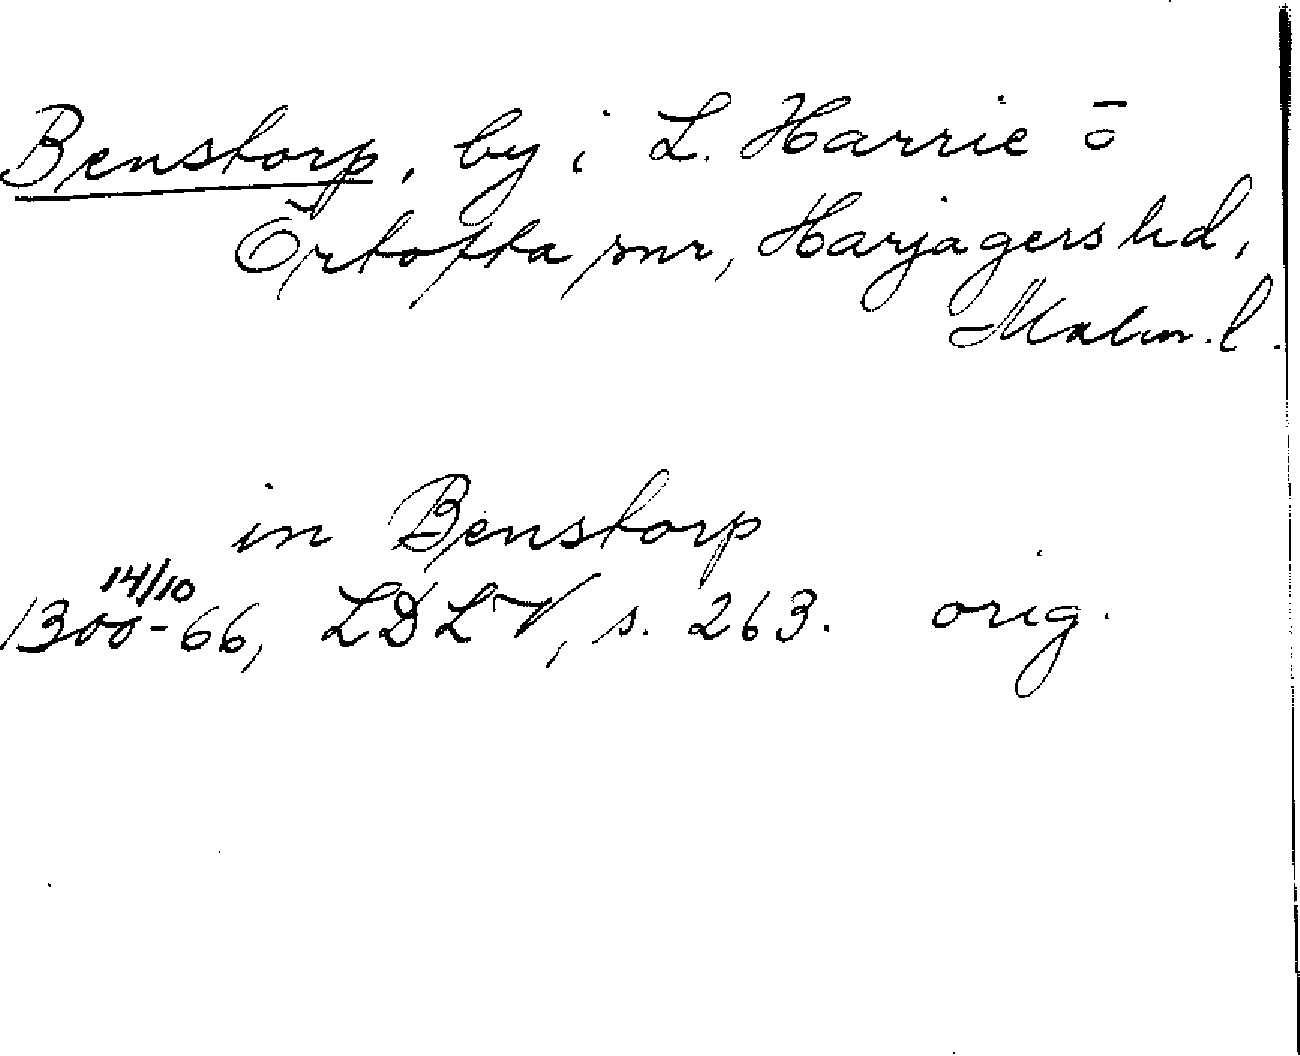 Benstorp, by i L. Harrie o̅
Örtofta snr, Harjagers hd,
Malm. l.
in Benstorp
14/10
1300-66, LDLV, s. 263. orig.